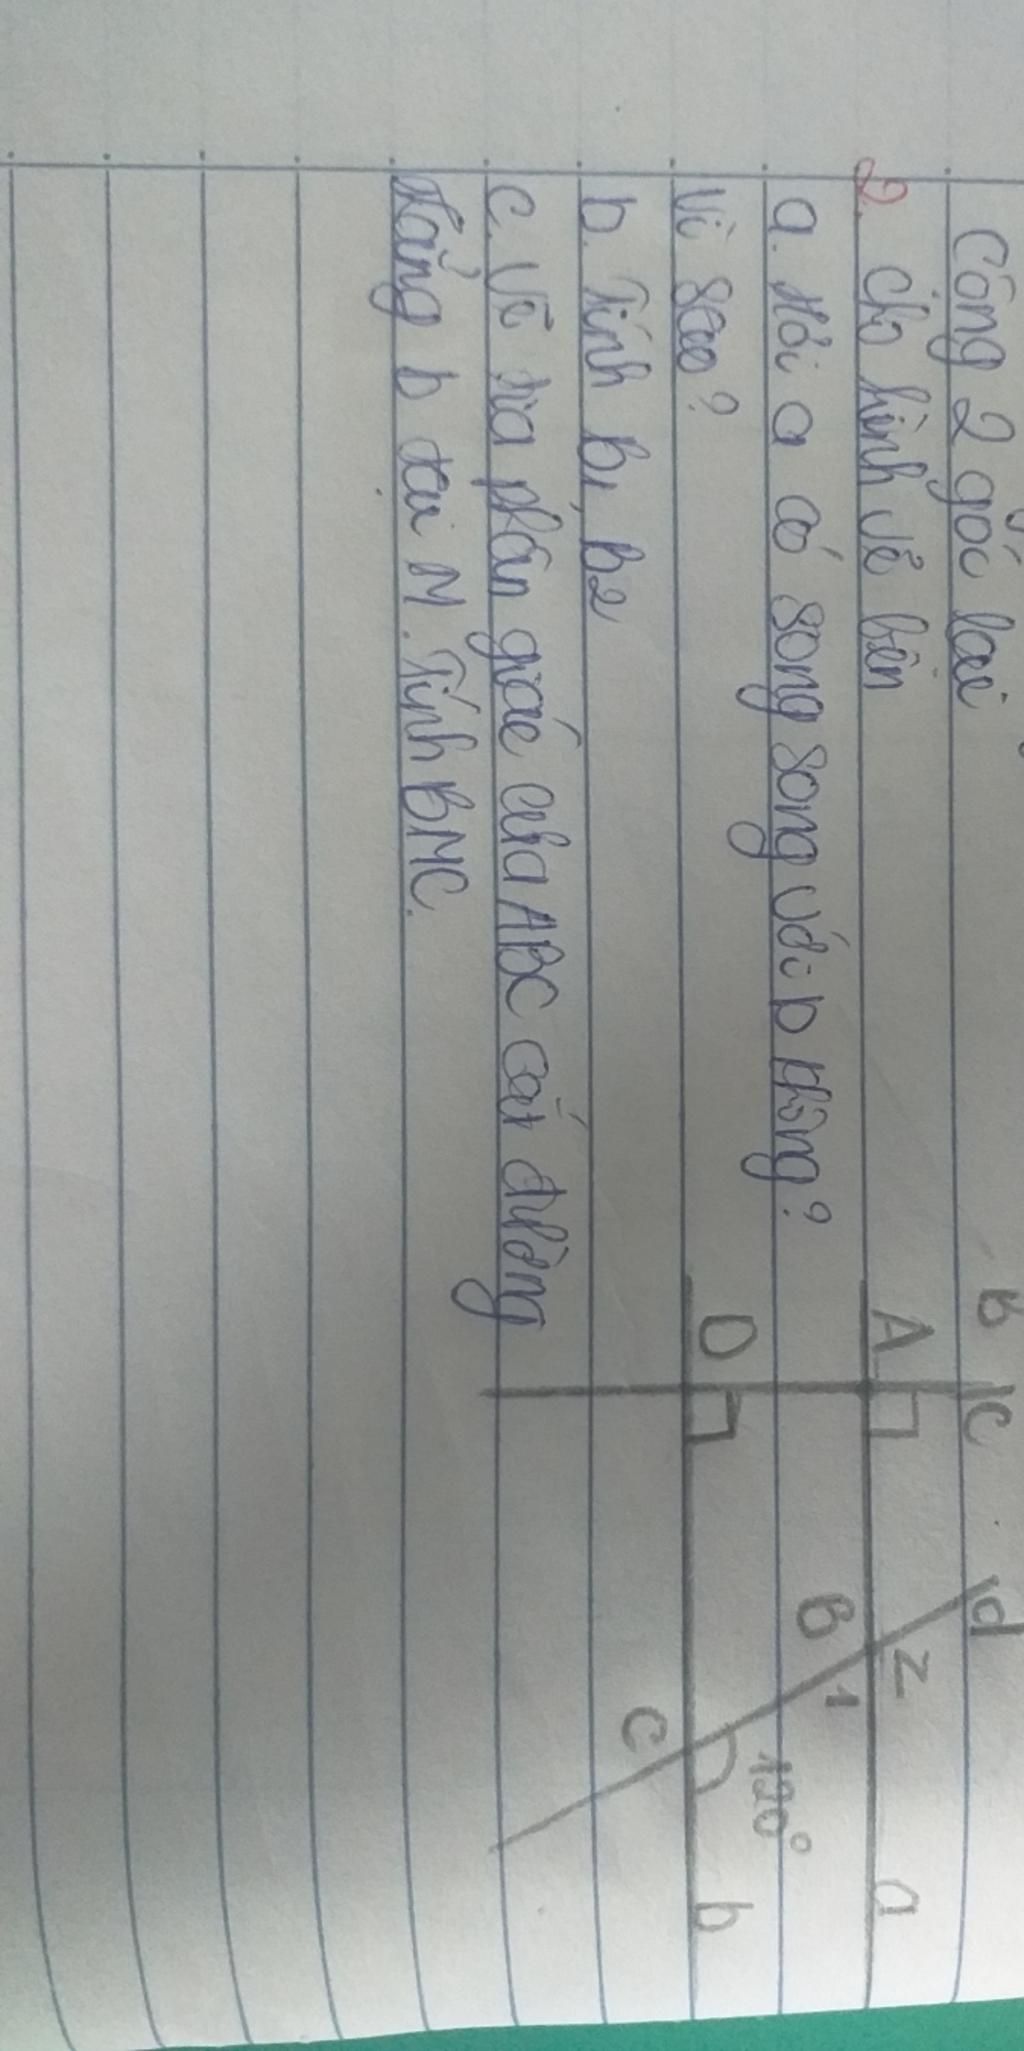 Cộng 2 góc lại
2. Cho hình vẽ bên
a. Hỏi a có song song với b không?
Vì sao?
b. Tính B1, B2
c. Vẽ tia phân giác của ABC cắt đường
thẳng b tại M. Tính BMC.
B
c
d
A
2
a
B
1
D
120°
C
b